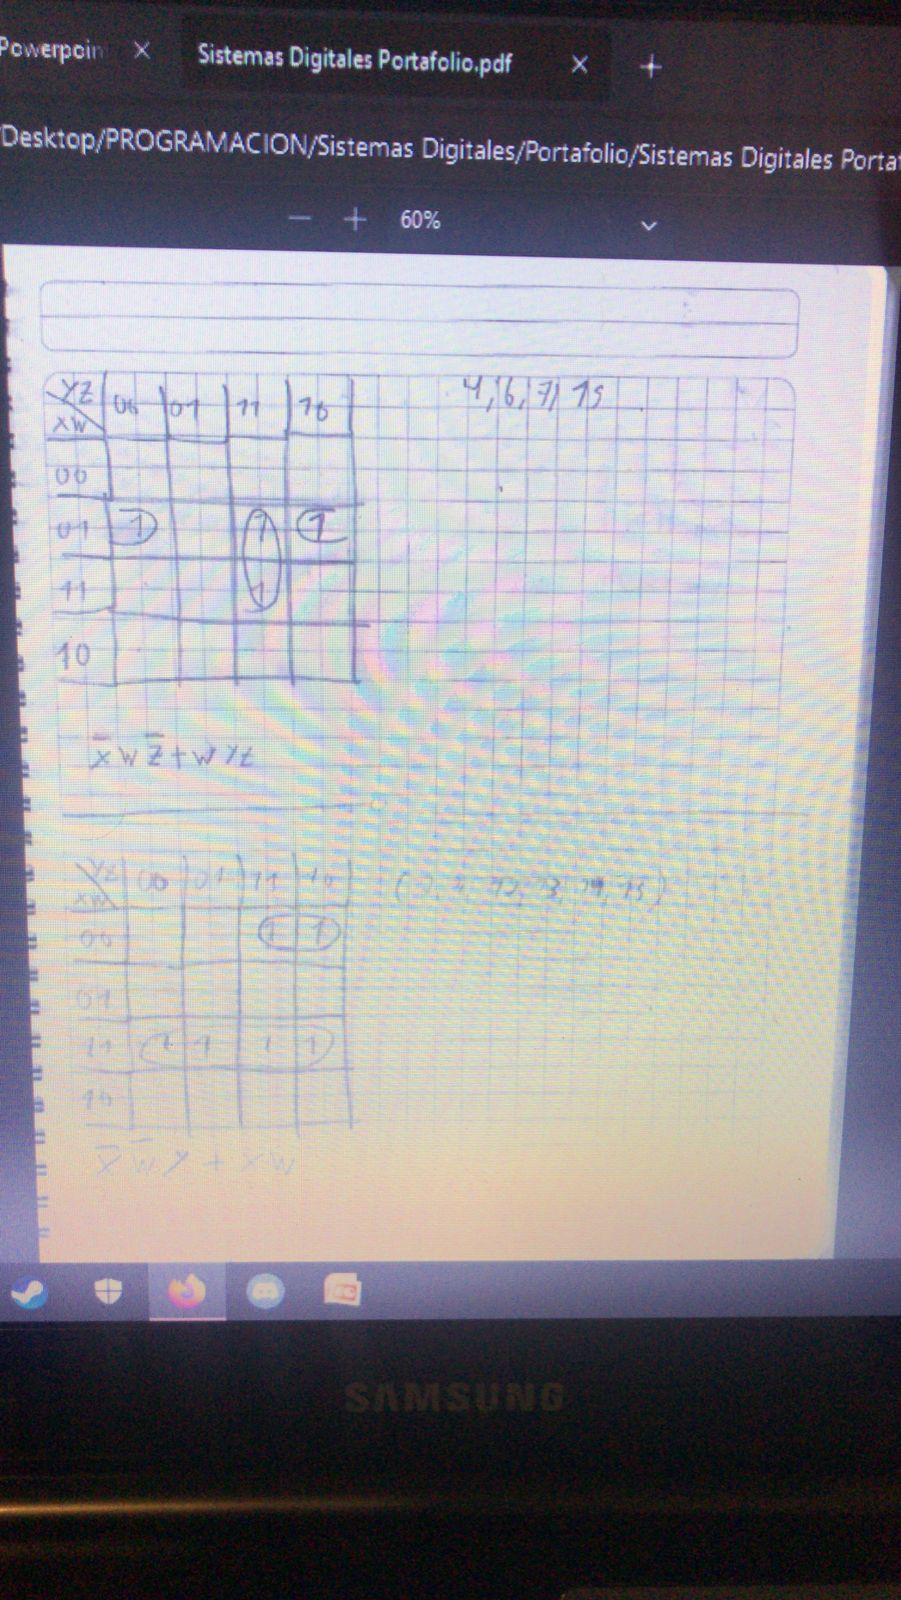 Powerpoin
Sistemas Digitales Portafolio.pdf
Desktop/PROGRAMACION/Sistemas Digitales/Portafolio/Sistemas Digitales Porta
60%
YZ 00 01 11 10 4, 6, 7, 15
XW
00
01 1 1 1
11 1
10
x̄ w z̄ + w y z
YZ 00 01 11 10 12, 13, 14, 15)
XW
00 1 1
01
11 1 1 1 1
10
x̄ w̄ y + x w
SAMSUNG